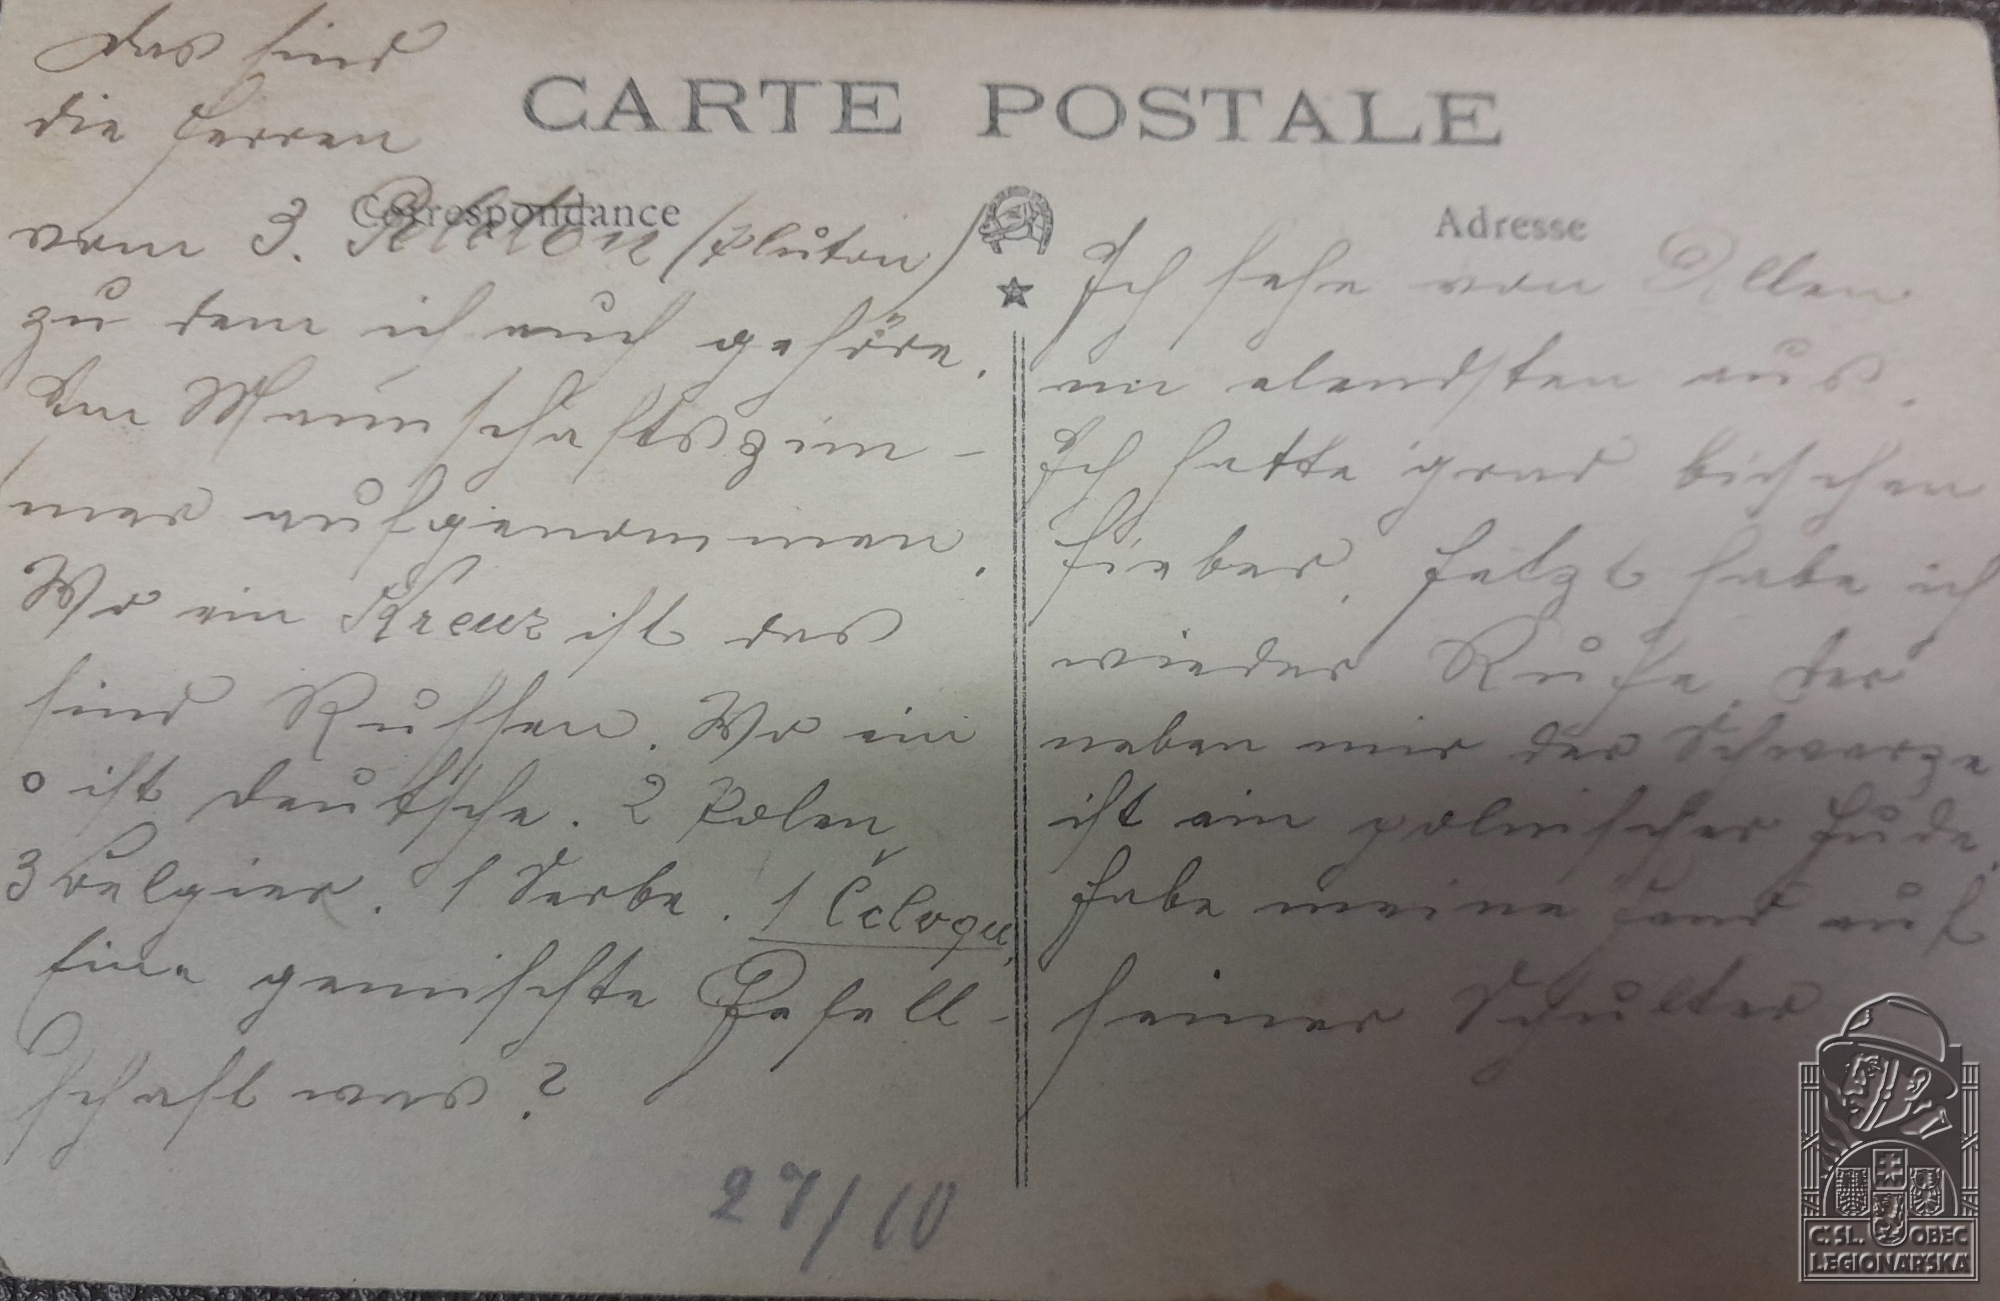 CARTE POSTALE
Correspondance
Adresse
Das sind
die Herren
vom 3. Peleton (Pluton)
zu dem ich auch gehöre.
Im Mannschaftszim-
mer aufgenommen.
Wo ein Kreuz ist das
sind Russen. Wo ein
o ist Deutsche. 2 Polen,
3 Belgier. 1 Serbe. 1
Eine gemischte Gesell-
schaft was?
27/10
Ich sehe von Allen
am elendsten aus.
Ich hatte grad bisschen
Fieber. Jetzt habe ich
wieder Ruhe. Der
neben mir der Schwarze
ist ein polnischer Jude.
Habe meine Hand auf
seiner Schulter
Č. SL. OBEC
LEGIONÁŘSKÁ